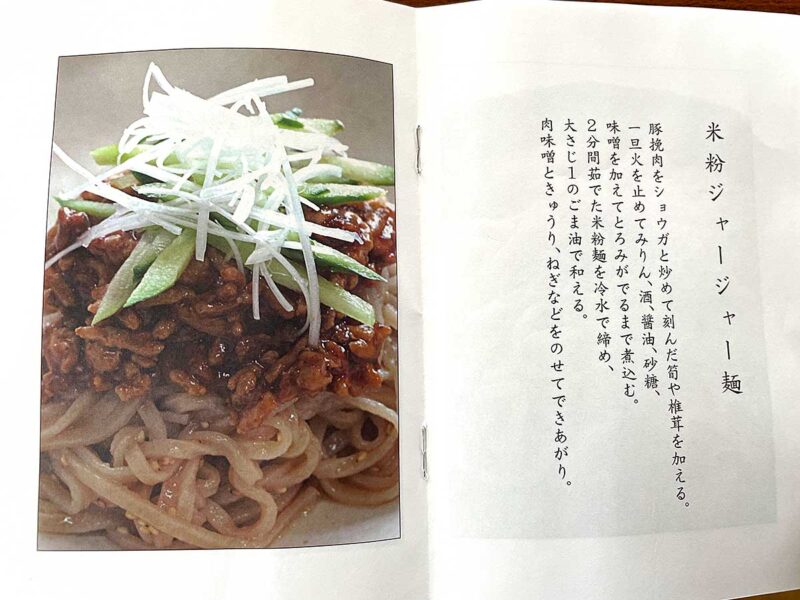 米粉ジャージャー麺
豚挽肉をショウガと炒めて刻んだ筍や椎茸を加える。
一旦火を止めてみりん、酒、醤油、砂糖、
味噌を加えてとろみがでるまで煮込む。
2分間茹でた米粉麺を冷水で締め、
大さじ1のごま油で和える。
肉味噌ときゅうり、ねぎなどをのせてできあがり。